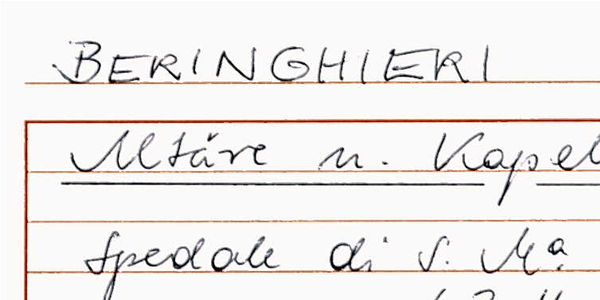 BERINGHIERI
Altäre u. Kapel
Spedale di S. Mª